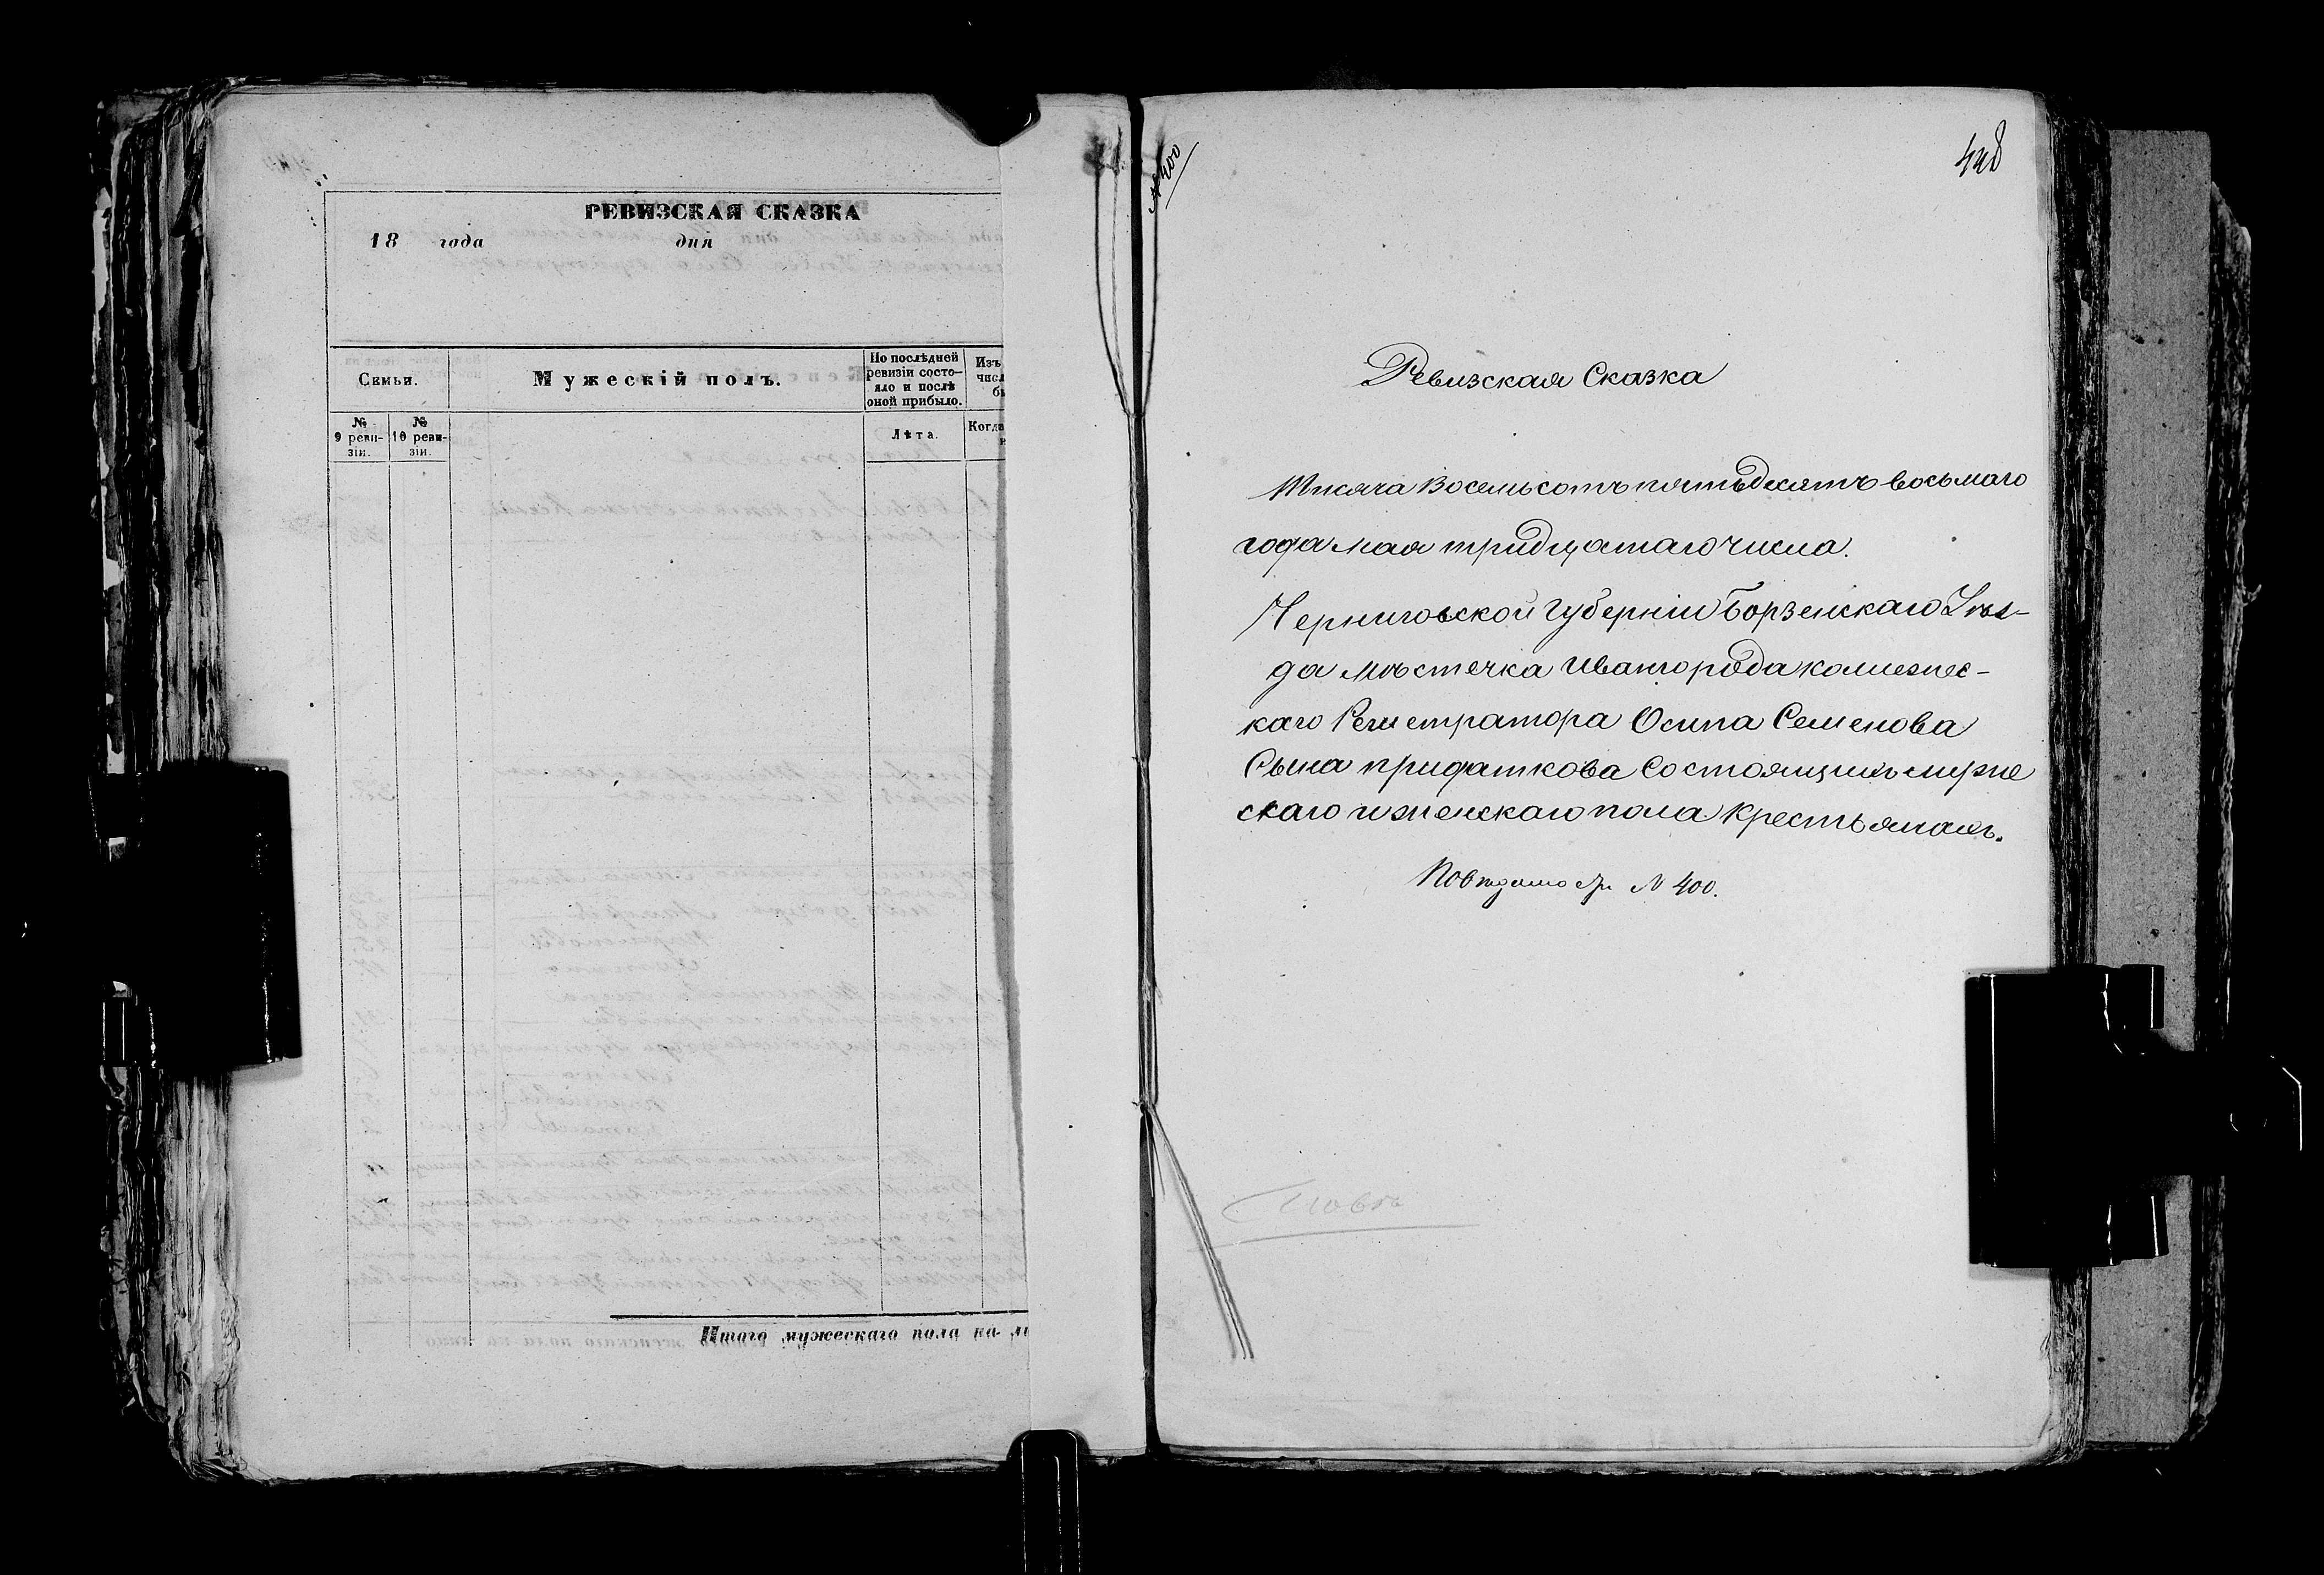 РЕВИЗСКАЯ СКАЗКА
18 года дня
Семьи.
Мужескій полъ.
По послѣдней
ревизіи состо-
яло и послѣ
оной прибыло.
Изъ
числ
бы
№
9 реви-
зіи.
№
10 реви-
зіи.
Лѣта.
Когда
и
Итого мужескаго пола на ли
№ 400
448
Ревизская Сказка
Тысяча восемьсотъ пятьдесятъ восьмаго
года мая тридцатаго числа.
Черниговской Губерніи Борзенскаго Уѣз-
да мѣстечка Ивангорода коллежес-
каго Регистратора Осипа Семенова
Сына придаткова Состоящимъ мужe
скаго и женскаго пола крестьянамъ.
N 400.